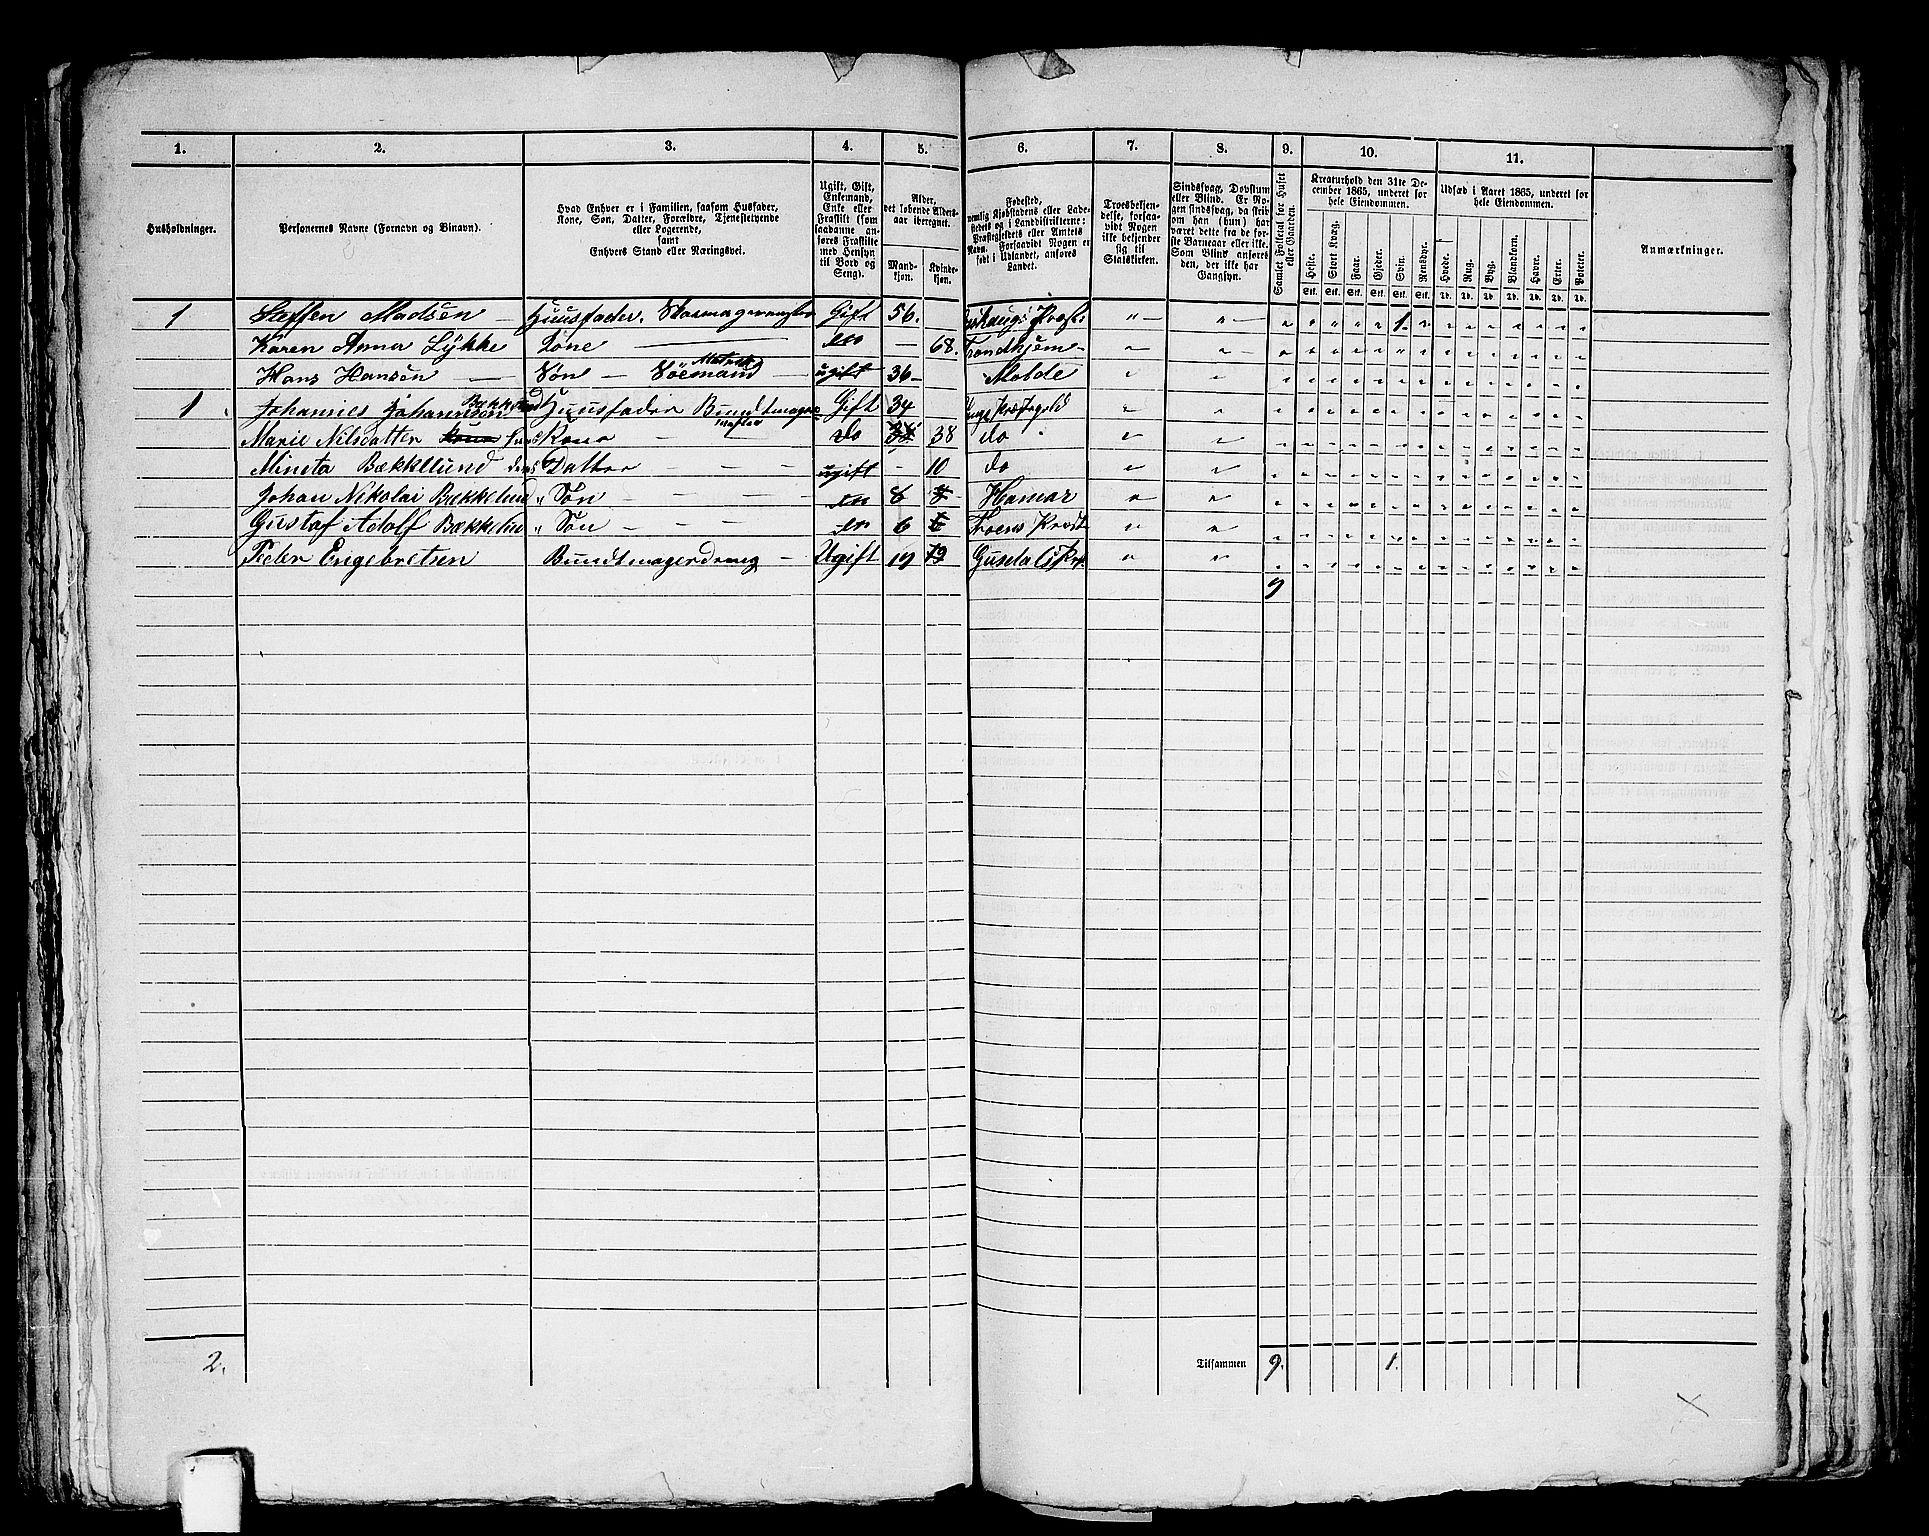 1. 2. 3. 4. 5. 6. 7. 8. 9. 10. 11.
Husholdninger.
Personernes Navne (Fornavn og Binavn).
Hvad Enhver er i Familien, saasom Husfader,
Kone, Søn, Datter, Forældre, Tjenestetyende
eller Logerende,
samt
Enhvers Stand eller Næringsvei.
Ugift, Gift,
Enkemand,
Enke eller
Fraskilt (som
saadanne an-
føres Fraskilte
med Hensyn
til Bord og
Seng).
Alder,
det løbende Alders-
aar iberegnet.
Mand-
kjøn.
Kvinde-
kjøn.
Fødested,
nemlig Kjøbstadens eller Lade-
stedets og i Landdistrikterne:
Præstegjeldets eller Amtets
Navn. Forsaavidt Nogen er
født i Udlandet, anføres
Landet.
Troesbekjen-
delse, forsaa-
vidt Nogen
ikke bekjender
sig til
Statskirken.
Sindssvag, Døvstum
eller Blind. Er No-
gen sindssvag, da skriv
om han (hun) har
været dette fra de før-
ste Barneaar eller ikke.
Som Blind ansøres
den, der ikke har
Gangsyn.
Samlet Folketal for Huset
eller Gaarden.
Kreaturhold den 31te De-
cember 1865, underet for
hele Eiendommen.
Heste. Stort Kvæg. Faar. Gjeder. Svin. Rensdyr.
Stk. Stk. Stk. Stk. Stk. Stk.
Udsæd i Aaret 1865, underet for
hele Eiendommen.
Hvede. Rug. Byg. Blandkorn. Havre. Erter. Poteter.
Td. Td. Td. Td. Td. Td. Td.
Anmærkninger.
1 Steffen Madsen — Huusfader. Gift 56. 1
Karen Anna Lykke Kone do — 68. Trondhjem
Hans Hansen — Søn — Matros Söemand ugift 36 Molde
1 Johannes Johannesen Bækkelund Huusfader Bundtmager mester Gift 34
Marie Nilsdatter Kone do 38 do
Mineta Bækkelund deres Datter ugift — 10 do
Johan Nikolai Bækkelund " Søn do 8 8 Hamar
Gustaf Adolf Bækkelun " Søn do 6 6
Peder Engebretsen Bundtmagerdreng — Ugift 19 19
9
2. Tilsammen 9. 1.